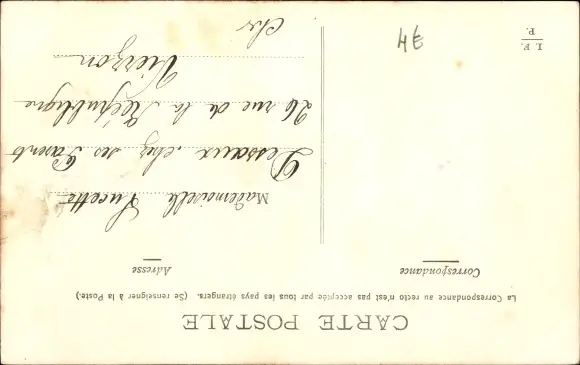 CARTE POSTALE
La Correspondance au recto n'est pas acceptée par tous les pays étrangers. (Se renseigner à la Poste.)
Correspondance
Adresse
Mademoiselle Lucette
Dessaux chez ses Parents
26 rue de la République
Vierzon
Cher
I. F.
P.
4€